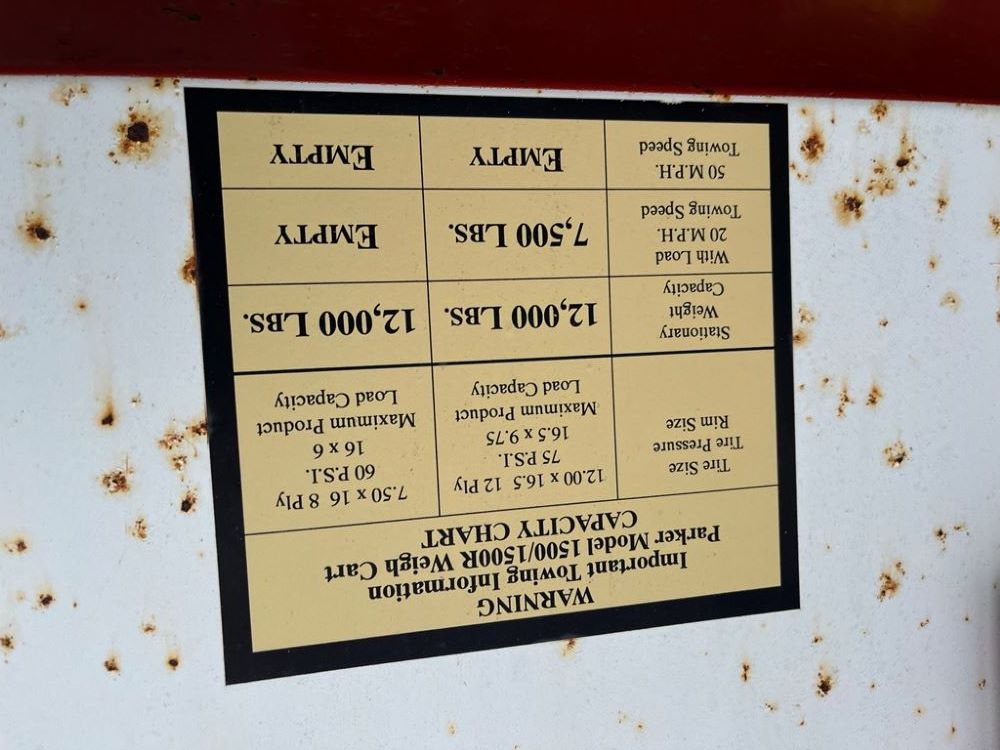 WARNING
Important Towing Information
Parker Model 1500/1500R Weigh Cart
CAPACITY CHART
Tire Size
Tire Pressure
Rim Size
12.00 x 16.5 12 Ply
75 P.S.I.
16.5 x 9.75
Maximum Product
Load Capacity
7.50 x 16 8 Ply
60 P.S.I.
16 x 6
Maximum Product
Load Capacity
Stationary
Weight
Capacity
12,000 LBS.
12,000 LBS.
With Load
20 M.P.H.
Towing Speed
7,500 LBS.
EMPTY
50 M.P.H.
Towing Speed
EMPTY
EMPTY